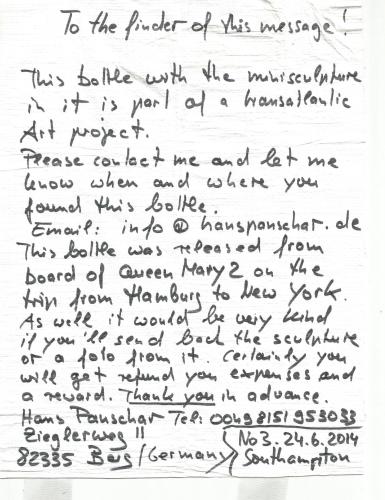 To the finder of this message!
This bottle with the minisculpture
in it is part of a transatlantic
Art project.
Please contact me and let me
know when and where you
found this bottle.
Email: info@hanspanschar.de
This bottle was released from
board of Queen Mary 2 on the
trip from Hamburg to New York.
As well it would be very kind
if you'll send back the sculpture
or a foto from it. Certainly you
will get refund you expenses and
a reward. Thank you in advance.
Hans Panschar Tel: 0049 8151 953033
Zieglerweg 11
82335 Berg / (Germany)
No 3. 24.6.2014
Southampton